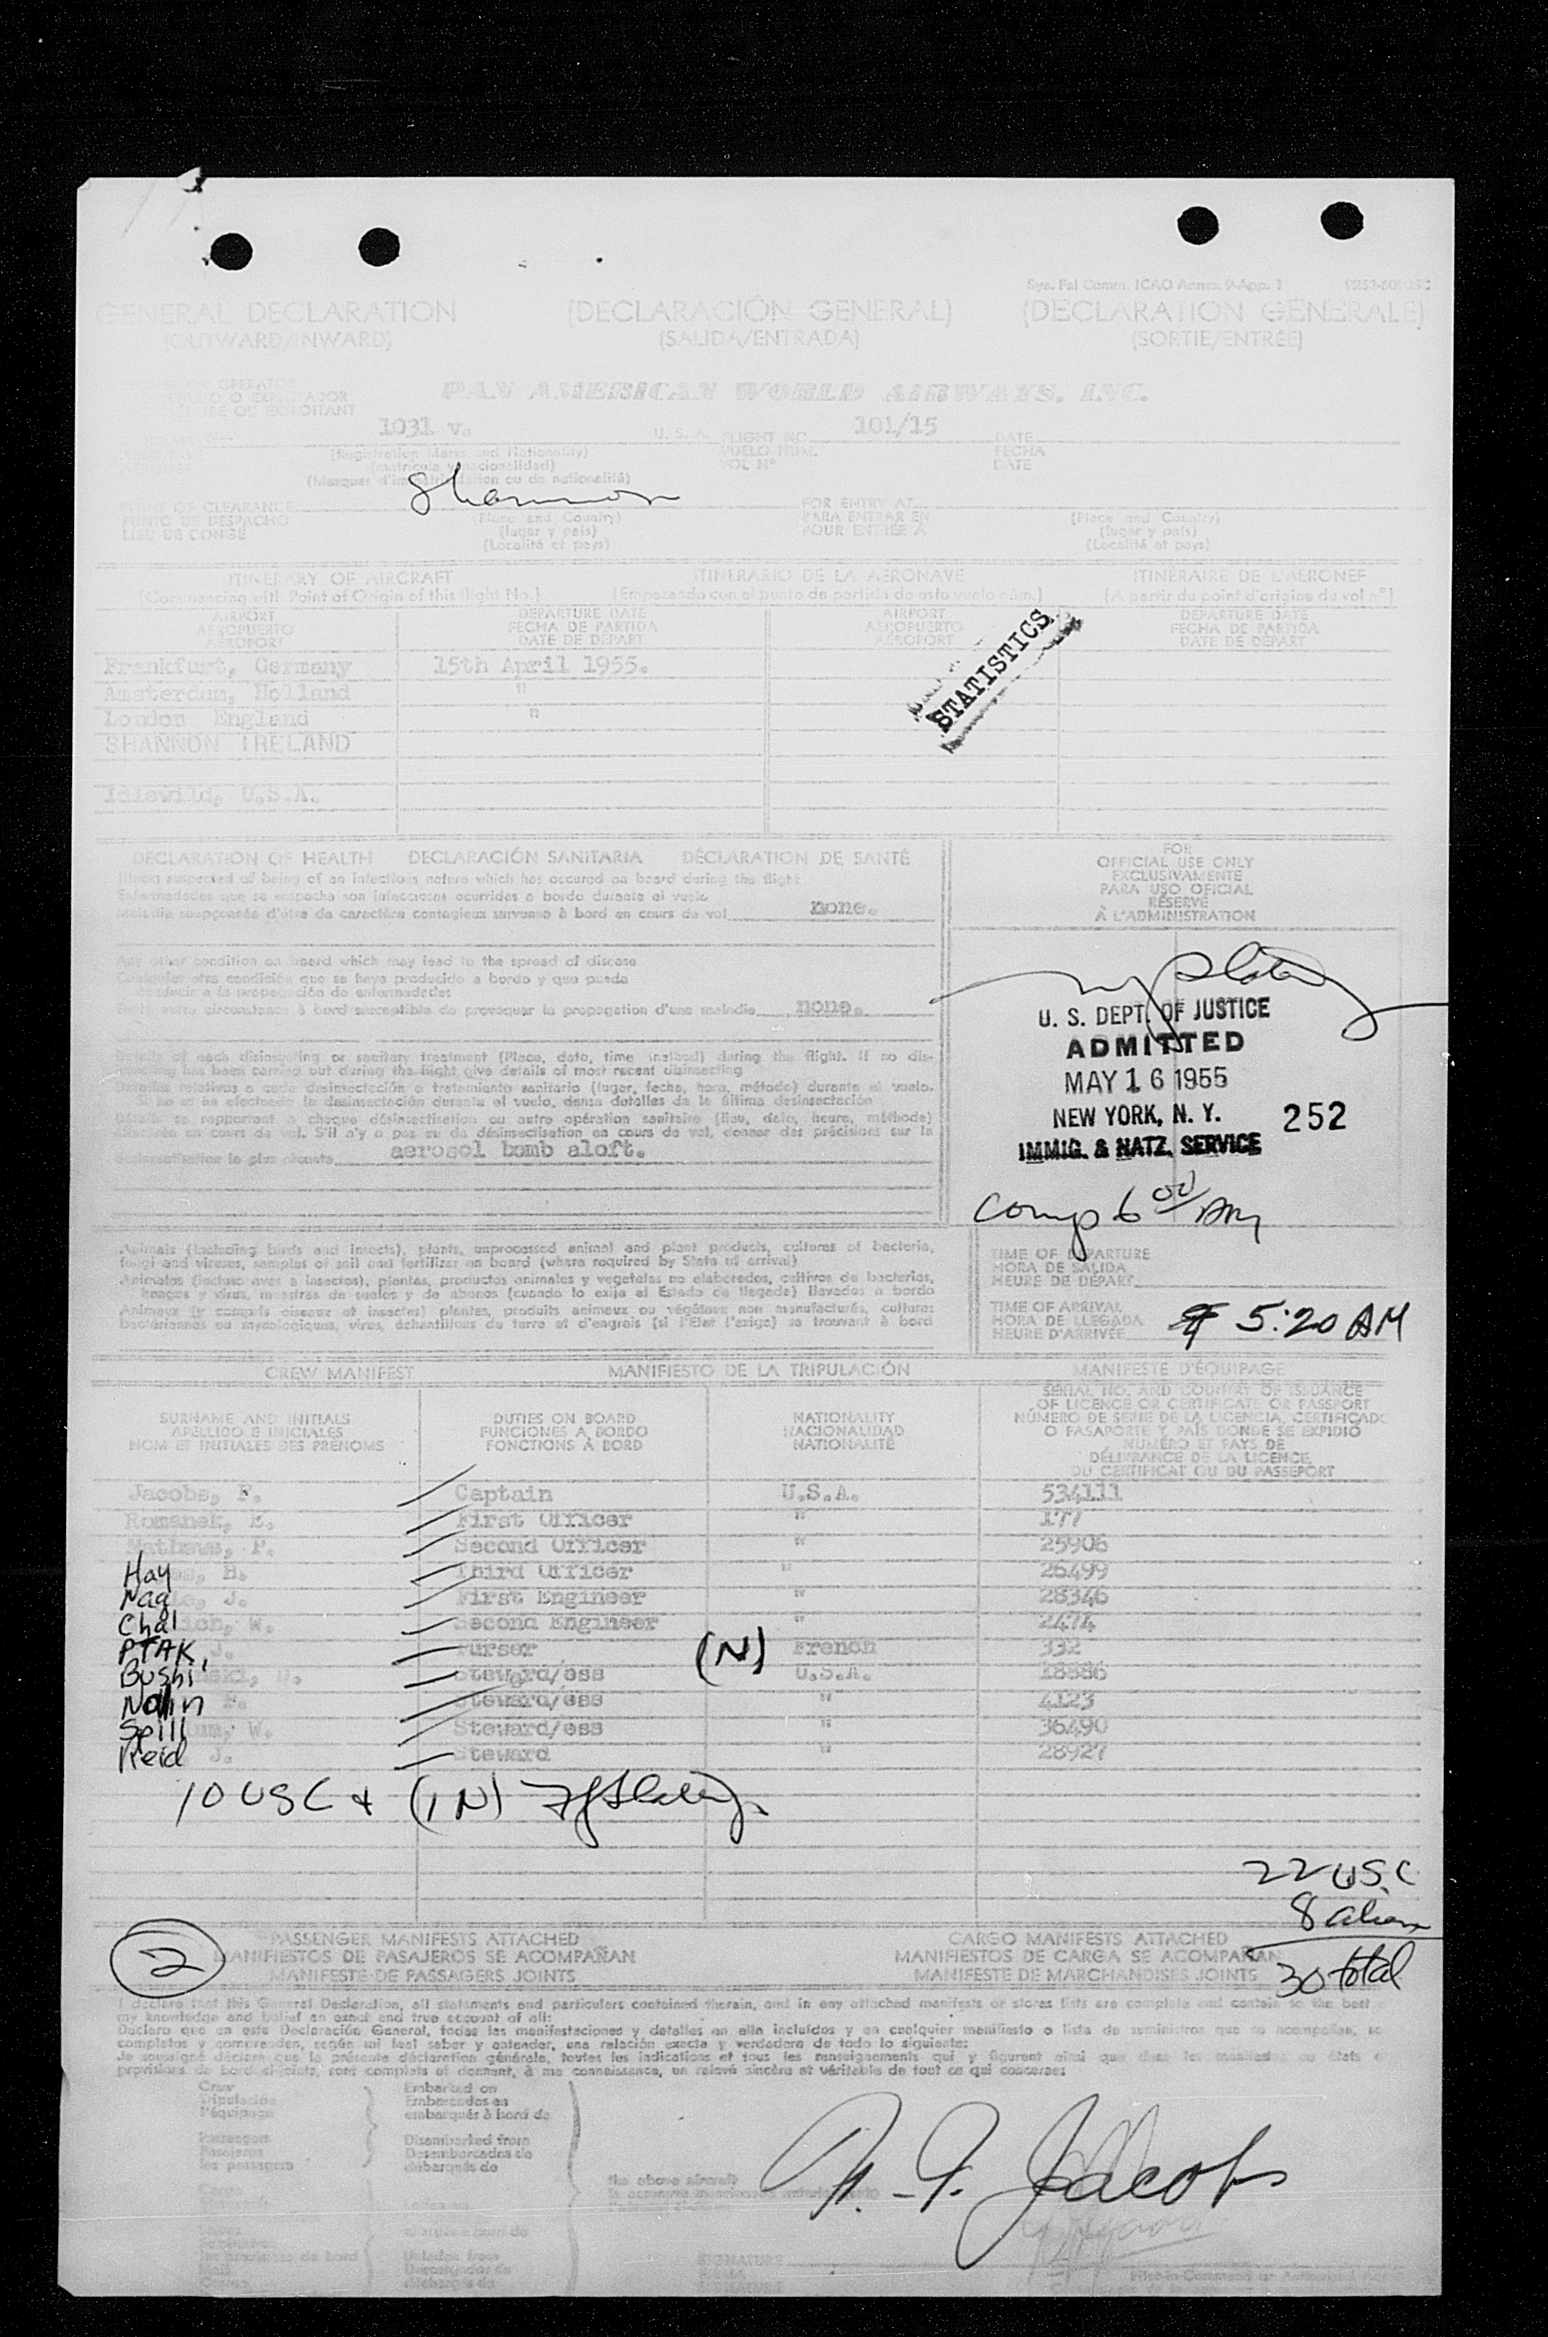 Sys. Fal Comm. ICAO Annex 9-App. 1
GENERAL DECLARATION (DECLARACIÓN GENERAL) (DECLARATION GENERALE)
(OUTWARD/INWARD) (SALIDA/ENTRADA) (SORTIE/ENTRÉE)
OPERATOR
PAN AMERICAN WORLD AIRWAYS, INC.
1031 v. U. S. A. FLIGHT NO. 101/15 DATE
(Registration Marks and Nationality) VUELO NUM. FECHA
(matrícula y nacionalidad) VOL Nº DATE
(Marques d'immatriculation ou de nationalité)
Shannon
OF CLEARANCE FOR ENTRY AT
PUNTO DE DESPACHO (Place and Country) PARA ENTRAR EN (Place and Country)
LIEU DE CONGÉ (lugar y país) POUR ENTRÉE A (lugar y país)
(Localité et pays) (Localité et pays)
ITINERARY OF AIRCRAFT ITINERARIO DE LA AERONAVE ITINÉRAIRE DE L'AÉRONEF
(Commencing with Point of Origin of this flight No.) (Empezando con el punto de partida de este vuelo núm.) (A partir du point d'origine du vol nº)
AIRPORT DEPARTURE DATE AIRPORT DEPARTURE DATE
AEROPUERTO FECHA DE PARTIDA AEROPUERTO FECHA DE PARTIDA
AÉROPORT DATE DE DÉPART AÉROPORT DATE DE DÉPART
Frankfurt, Germany 15th April 1955.
Amsterdam, Holland "
London England "
SHANNON IRELAND
Idlewild, U.S.A.
STATISTICS
DECLARATION OF HEALTH DECLARACIÓN SANITARIA DÉCLARATION DE SANTÉ
Illness suspected of being of an infectious nature which has occured on board during the flight
Enfermedades que se sospecha son infecciosas ocurridas a bordo durante el vuelo
Maladie soupçonnée d'être de caractère contagieux survenue à bord en cours de vol none.
Any other condition on board which may lead to the spread of disease
Cualquier otra condición que se haya producido a bordo y que pueda
conducir a la propagación de enfermedades
circonstance à bord susceptible de provoquer la propagation d'une maladie none.
Details of each disinsecting or sanitary treatment (Place, date, time, method) during the flight. If no dis-
insecting has been carried out during the flight give details of most recent disinsecting
Detalles relativos a cada desinsectación o tratamiento sanitario (lugar, fecha, hora, método) durante el vuelo.
Si no se ha efectuado la desinsectación durante el vuelo, dense detalles de la última desinsectación
Détails se rapportant à chaque désinsectisation ou autre opération sanitaire (lieu, date, heure, méthode)
en cours de vol. S'il n'y a pas eu de désinsectisation en cours de vol, donner des précisions sur la
désinsectisation la plus récente aerosol bomb aloft.
FOR
OFFICIAL USE ONLY
EXCLUSIVAMENTE
PARA USO OFICIAL
RÉSERVÉ
À L'ADMINISTRATION
U. S. DEPT. OF JUSTICE
ADMITTED
MAY 16 1955
NEW YORK, N. Y. 252
IMMIG. & NATZ. SERVICE
Comp 6 00 AM
Animals (including birds and insects), plants, unprocessed animal and plant products, cultures of bacteria,
fungi and viruses, samples of soil and fertilizer on board (where required by State of arrival)
Animales (incluso aves e insectos), plantas, productos animales y vegetales no elaborados, cultivos de bacterias,
hongos y virus, muestras de suelos y de abonos (cuando lo exija el Estado de llegada) llevados a bordo
Animaux (y compris oiseaux et insectes) plantes, produits animaux ou végétaux non manufacturés, cultures
bactériennes ou mycologiques, virus, échantillons de terre et d'engrais (si l'État l'exige) se trouvant à bord
TIME OF DEPARTURE
HORA DE SALIDA
HEURE DE DÉPART
TIME OF ARRIVAL
HORA DE LLEGADA
HEURE D'ARRIVÉE 5:20 AM
CREW MANIFEST MANIFIESTO DE LA TRIPULACIÓN MANIFESTE D'ÉQUIPAGE
SURNAME AND INITIALS
APELLIDO E INICIALES
NOM ET INITIALES DES PRÉNOMS
DUTIES ON BOARD
FUNCIONES A BORDO
FONCTIONS À BORD
NATIONALITY
NACIONALIDAD
NATIONALITÉ
SERIAL NO. AND COUNTRY OF ISSUANCE
OF LICENCE OR CERTIFICATE OR PASSPORT
NÚMERO DE SERIE DE LA LICENCIA, CERTIFICADO
O PASAPORTE Y PAÍS DONDE SE EXPIDIÓ
NUMÉRO ET PAYS DE
DÉLIVRANCE DE LA LICENCE
DU CERTIFICAT OU DU PASSEPORT
Jacobs, F. Captain U.S.A. 534111
Romanek, E. First Officer " 177
Mathews, P. Second Officer " 25906
Hay H. Third Officer " 26499
Nag J. First Engineer " 28346
Chal ich, W. Second Engineer " 2474
PTAK, J. Purser (N) French 332
Bushi nski, D. Steward/ess U.S.A. 18886
Nolin F. Steward/ess " 4123
Spill um, W. Steward/ess " 36490
Reid J. Steward " 28927
10 USC + (1 N)
22 USC
8 aliens
30 total
2
PASSENGER MANIFESTS ATTACHED CARGO MANIFESTS ATTACHED
MANIFIESTOS DE PASAJEROS SE ACOMPAÑAN MANIFIESTOS DE CARGA SE ACOMPAÑAN
MANIFESTE DE PASSAGERS JOINTS MANIFESTE DE MARCHANDISES JOINTS
I declare that this General Declaration, all statements and particulars contained therein, and in any attached manifests or stores lists are complete and contain to the best
my knowledge and belief an exact and true account of all:
Declaro que en esta Declaración General, todas las manifestaciones y detalles en ella incluídos y en cualquier manifiesto o lista de suministros que se acompañan, se
completos y comprenden, según mi leal saber y entender, una relación exacta y verdadera de todo lo siguiente:
Je soussigné déclare que la présente déclaration générale, toutes les indications et tous les renseignements qui y figurent ainsi que dans les manifestes ou états
provisions de bord ci-joints, sont complets et donnent, à ma connaissance, un relevé sincère et véritable de tout ce qui concerne:
Crew Embarked on
Tripulación Embarcados en
l'équipage embarqués à bord de
Passengers Disembarked from
Pasajeros Desembarcados de
les passagers débarqués de
the above aircraft
F. Jacobs
SIGNATURE